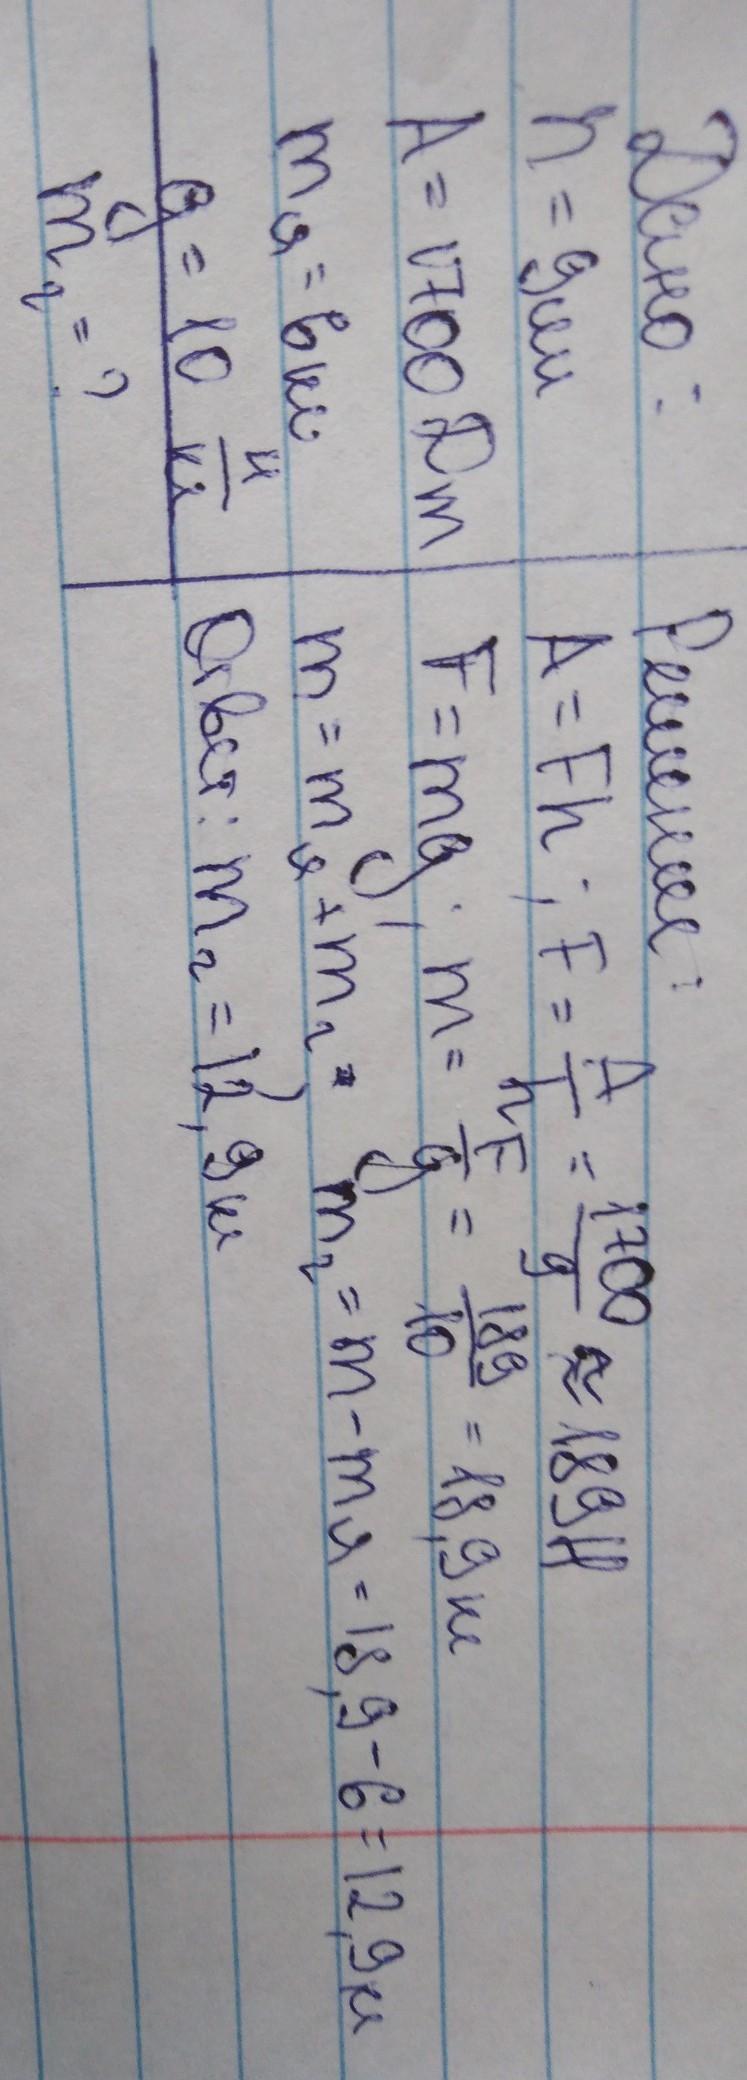 Дано:
h = 9 м
A = 1700 Дж
mя = 6 кг
g = 10 Н/кг
m2 = ?
Решение:
A = Fh; F = A/h = 1700/9 ≈ 189 Н
F = mg; m = F/g = 189/10 = 18,9 кг
m = mя + m2 = m2 = m - mя = 18,9 - 6 = 12,9 кг
Ответ: m2 = 12,9 кг